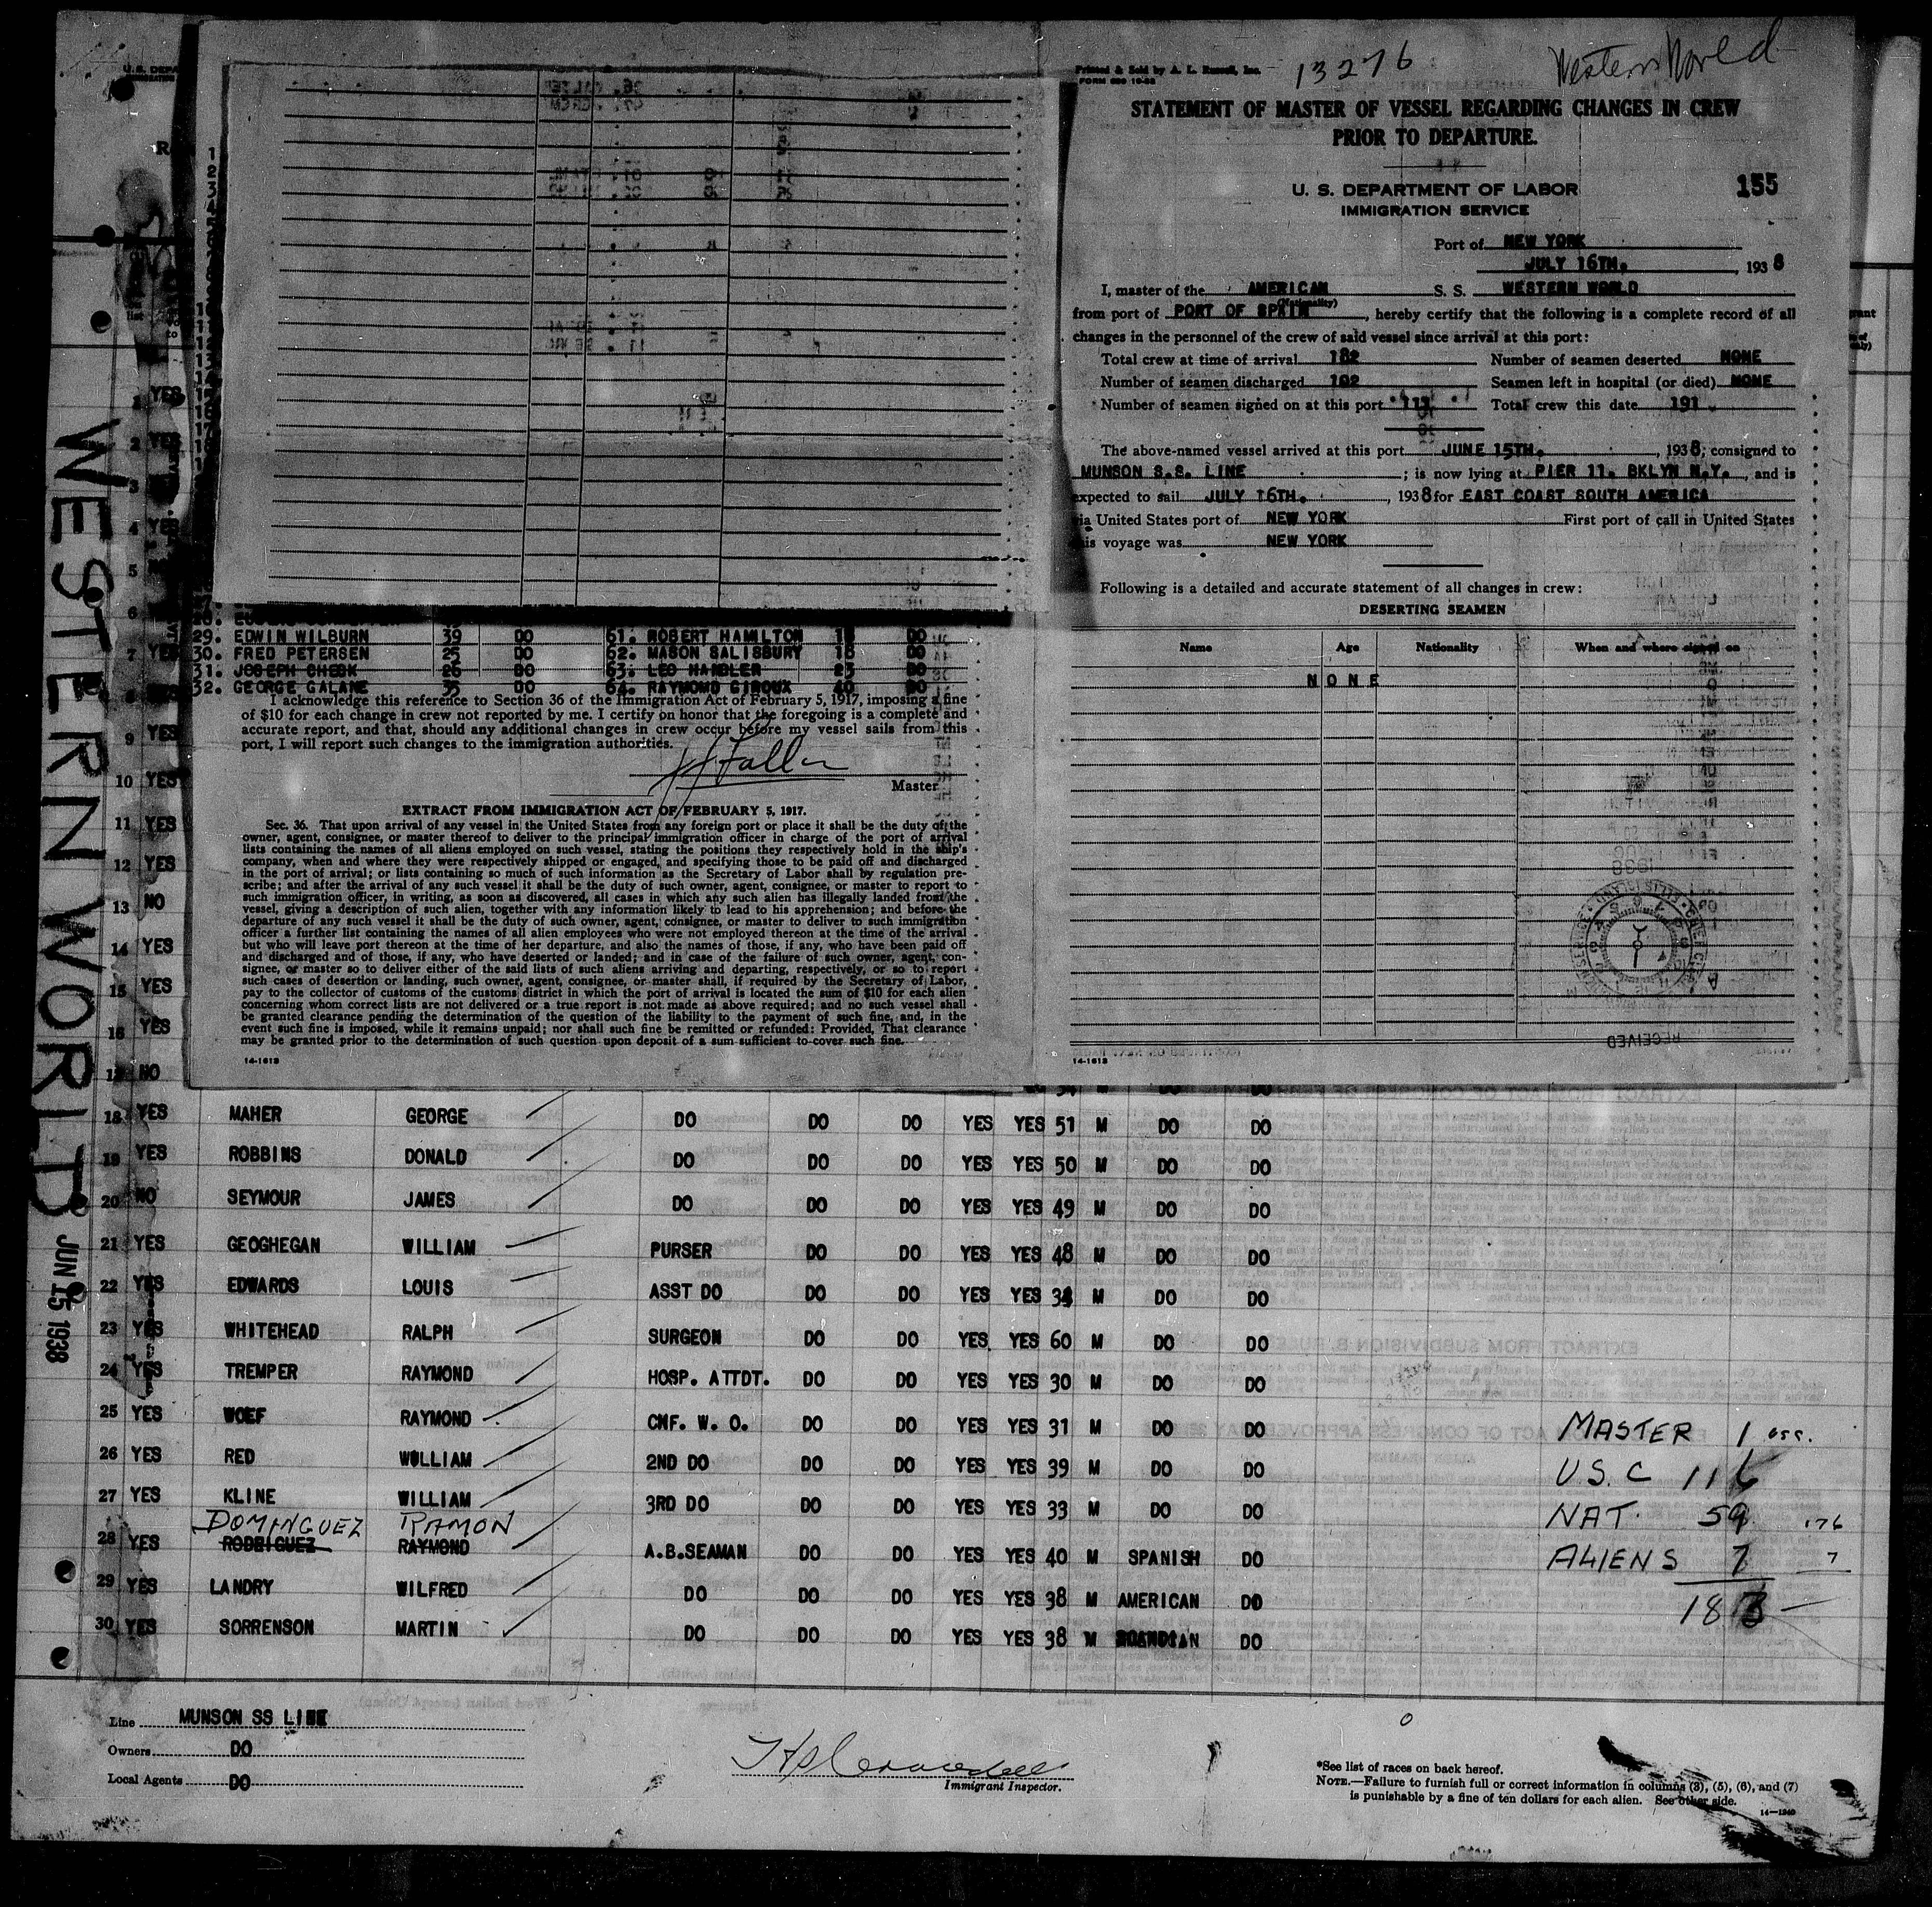 13276
Western World
Printed & Sold by A. L. Russell, Inc.
STATEMENT OF MASTER OF VESSEL REGARDING CHANGES IN CREW
PRIOR TO DEPARTURE.
U. S. DEPARTMENT OF LABOR
IMMIGRATION SERVICE
155
Port of NEW YORK
JULY 16TH. , 1938
I, master of the AMERICAN S. S. WESTERN WORLD
(Nationality)
from port of PORT OF SPAIN , hereby certify that the following is a complete record of all
changes in the personnel of the crew of said vessel since arrival at this port:
Total crew at time of arrival 182 Number of seamen deserted NONE
Number of seamen discharged 102 Seamen left in hospital (or died) NONE
Number of seamen signed on at this port 111 Total crew this date 191
The above-named vessel arrived at this port JUNE 15TH. , 1938; consigned to
MUNSON S.S. LINE ; is now lying at PIER 11. BKLYN N.Y. , and is
expected to sail JULY 16TH. , 1938 for EAST COAST SOUTH AMERICA
via United States port of NEW YORK First port of call in United States
this voyage was NEW YORK
Following is a detailed and accurate statement of all changes in crew:
DESERTING SEAMEN
Name Age Nationality When and where signed on
NONE
RECEIVED
14-1613
29. EDWIN WILBURN 39 DO 61. ROBERT HAMILTON 18 DO
30. FRED PETERSEN 25 DO 62. MASON SALISBURY 18 DO
31. JOSEPH CHESK 26 DO 63. LEO HANDLER 23 DO
32. GEORGE GALANE 35 DO 64. RAYMOND GIROUX 40 DO
I acknowledge this reference to Section 36 of the Immigration Act of February 5, 1917, imposing a fine
of $10 for each change in crew not reported by me. I certify on honor that the foregoing is a complete and
accurate report, and that, should any additional changes in crew occur before my vessel sails from this
port, I will report such changes to the immigration authorities.
Master
EXTRACT FROM IMMIGRATION ACT OF FEBRUARY 5, 1917.
Sec. 36. That upon arrival of any vessel in the United States from any foreign port or place it shall be the duty of the
owner, agent, consignee, or master thereof to deliver to the principal immigration officer in charge of the port of arrival
lists containing the names of all aliens employed on such vessel, stating the positions they respectively hold in the ship's
company, when and where they were respectively shipped or engaged, and specifying those to be paid off and discharged
in the port of arrival; or lists containing so much of such information as the Secretary of Labor shall by regulation pre-
scribe; and after the arrival of any such vessel it shall be the duty of such owner, agent, consignee, or master to report to
such immigration officer, in writing, as soon as discovered, all cases in which any such alien has illegally landed from the
vessel, giving a description of such alien, together with any information likely to lead to his apprehension; and before the
departure of any such vessel it shall be the duty of such owner, agent, consignee, or master to deliver to such immigration
officer a further list containing the names of all alien employees who were not employed thereon at the time of the arrival
but who will leave port thereon at the time of her departure, and also the names of those, if any, who have been paid off
and discharged and of those, if any, who have deserted or landed; and in case of the failure of such owner, agent, con-
signee, or master so to deliver either of the said lists of such aliens arriving and departing, respectively, or so to report
such cases of desertion or landing, such owner, agent, consignee, or master shall, if required by the Secretary of Labor,
pay to the collector of customs of the customs district in which the port of arrival is located the sum of $10 for each alien
concerning whom correct lists are not delivered or a true report is not made as above required; and no such vessel shall
be granted clearance pending the determination of the question of the liability to the payment of such fine, and, in the
event such fine is imposed, while it remains unpaid; nor shall such fine be remitted or refunded: Provided, That clearance
may be granted prior to the determination of such question upon deposit of a sum sufficient to cover such fine.
14-1613
WESTERN WORLD JUN 15 1938
1 YES
2 YES
3
4 YES
5
6
7 YES
8
9 YES
10 YES
11 YES
12 YES
13 NO
14 YES
15 YES
16 YES
17 NO
18 YES MAHER GEORGE DO DO DO YES YES 51 M DO DO
19 YES ROBBINS DONALD DO DO DO YES YES 50 M DO DO
20 NO SEYMOUR JAMES DO DO DO YES YES 49 M DO DO
21 YES GEOGHEGAN WILLIAM PURSER DO DO YES YES 48 M DO DO
22 YES EDWARDS LOUIS ASST DO DO DO YES YES 34 M DO DO
23 YES WHITEHEAD RALPH SURGEON DO DO YES YES 60 M DO DO
24 YES TREMPER RAYMOND HOSP. ATTDT. DO DO YES YES 30 M DO DO
25 YES WOEF RAYMOND CNF. W. O. DO DO YES YES 31 M DO DO
26 YES RED WOLLIAM 2ND DO DO DO YES YES 39 M DO DO
27 YES KLINE WILLIAM 3RD DO DO DO YES YES 33 M DO DO
DOMINGUEZ RAMON
28 YES RODRIGUEZ RAYMOND A.B.SEAMAN DO DO YES YES 40 M SPANISH DO
29 YES LANDRY WILFRED DO DO DO YES YES 38 M AMERICAN DO
30 YES SORRENSON MARTIN DO DO DO YES YES 38 M DO
MASTER 1
U.S.C 116
NAT. 59 176
ALIENS 7 7
183
Line MUNSON SS LINE
Owners DO
Local Agents DO
Immigrant Inspector.
*See list of races on back hereof.
NOTE.—Failure to furnish full or correct information in columns (3), (5), (6), and (7)
is punishable by a fine of ten dollars for each alien. See other side.
14—1240